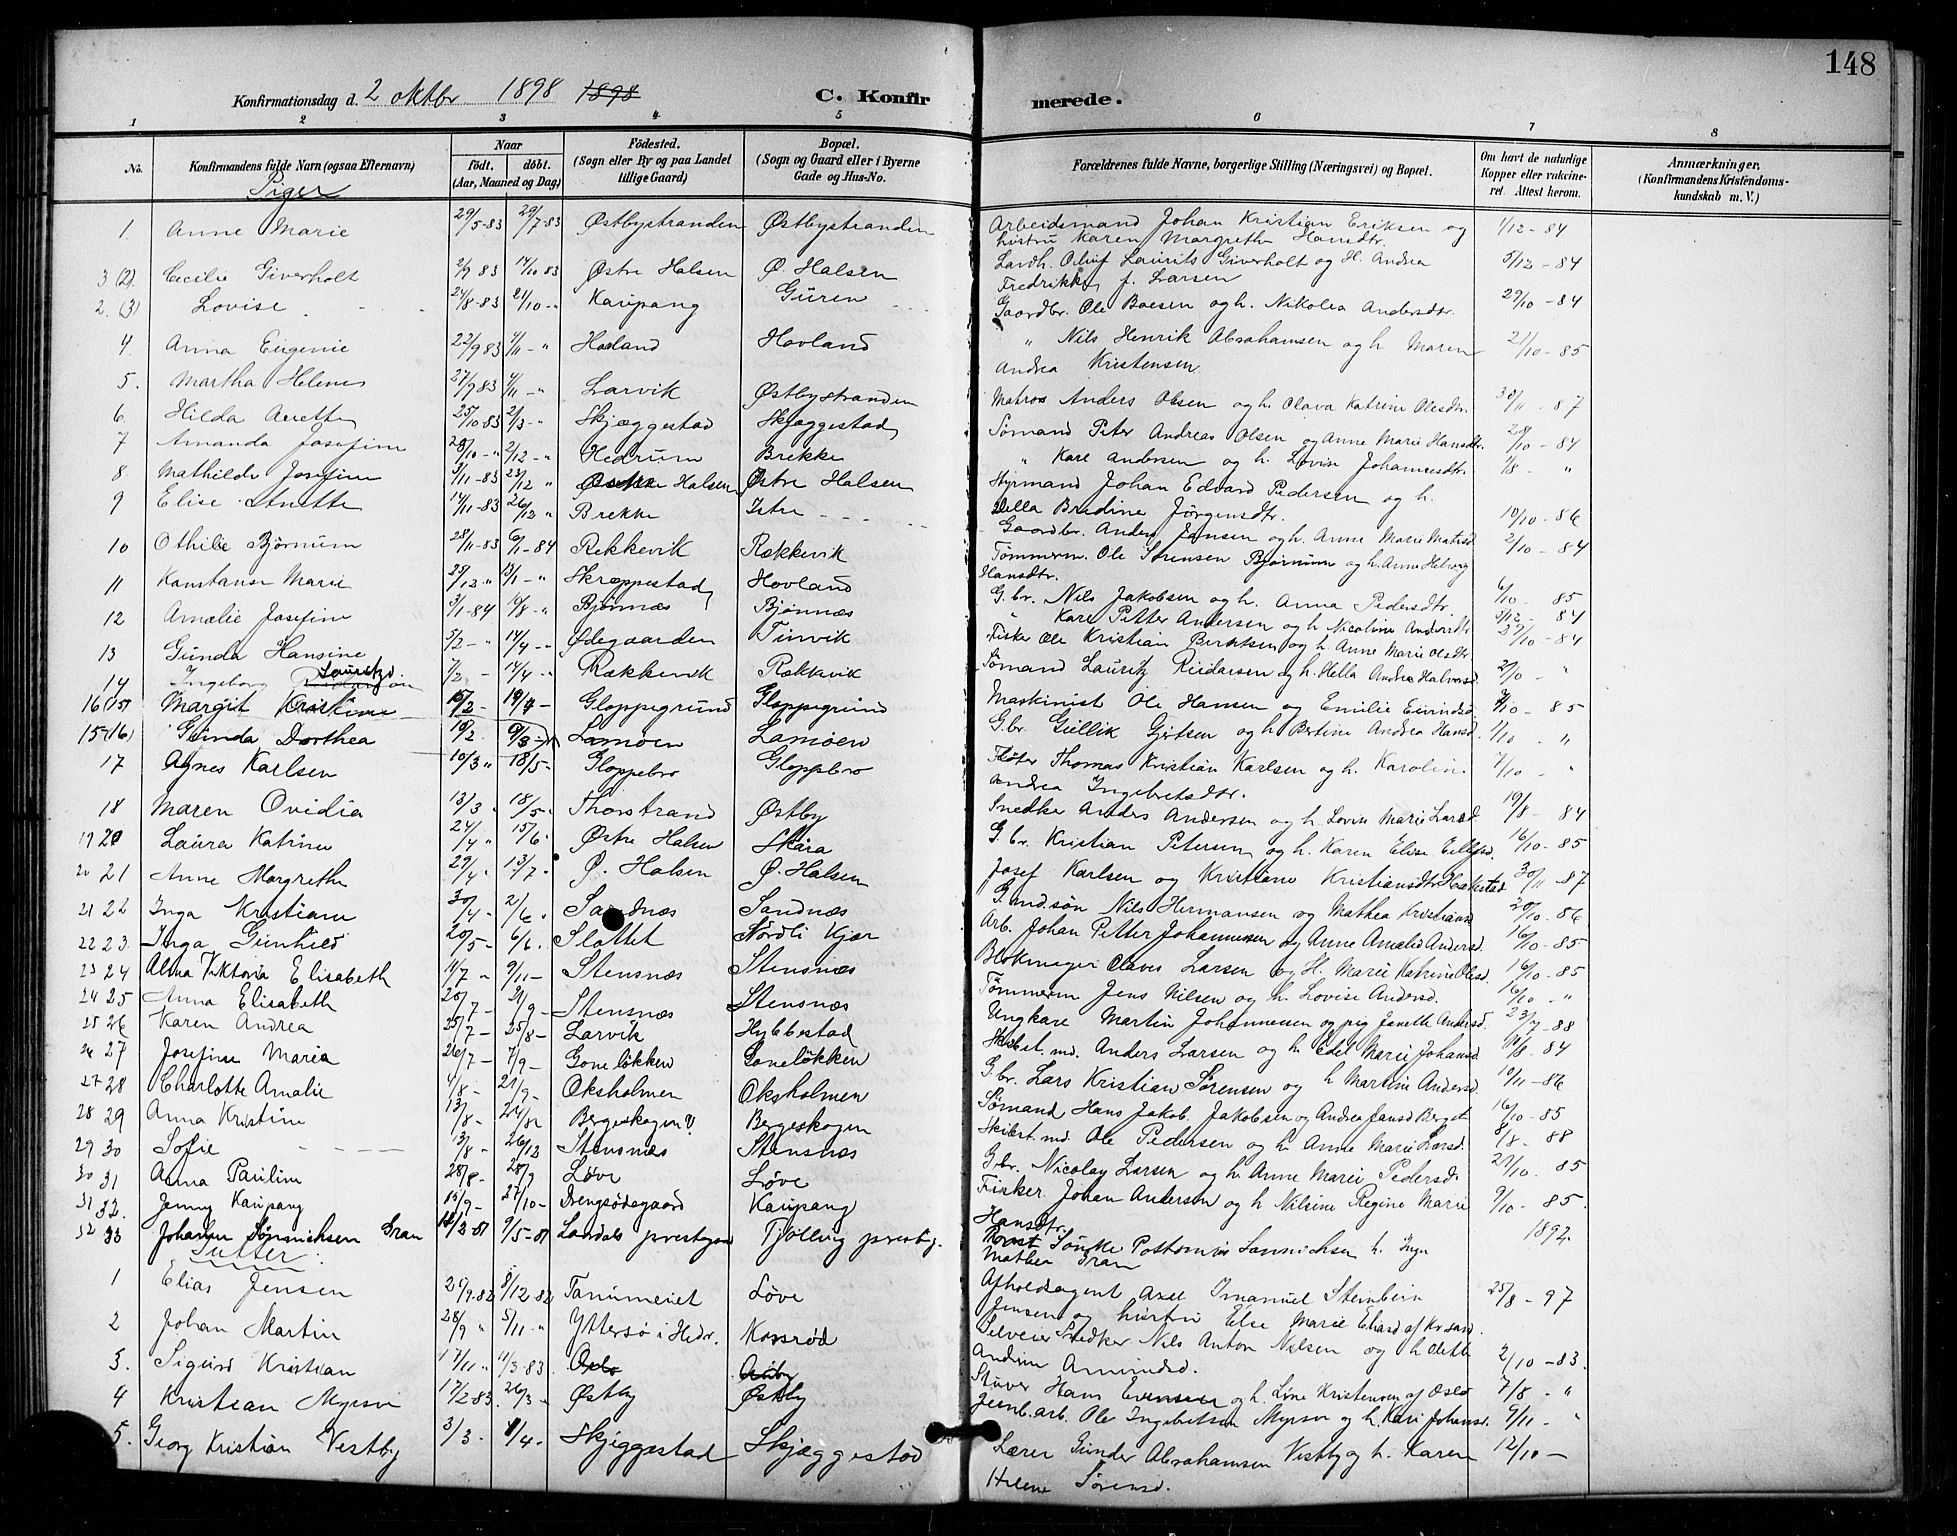 148
Konfirmationsdag d. 2 oktbr 1898 1898 C. Konfirmerede.
1 2 3 4 5 6 7 8
No. Konfirmandens fulde Navn (ogsaa Efternavn) Naar født. døbt. (Aar, Maaned og Dag) Fødested. (Sogn eller By og paa Landet tillige Gaard) Bopæl. (Sogn og Gaard eller i Byerne Gade og Hus-No. Forældrenes fulde Navne, borgerlige Stilling (Næringsvei) og Bopæl. Om havt de naturlige Kopper eller vakcineret. Attest herom. Anmærkninger, (Konfirmandens Kristendomskundskab m. V.)
Piger
1 Anne Marie 29/5-83 29/7-83 Østbystranden Østbystranden Arbeidsmand Johan Kristian Eriksen og 1/12-84
hustru Karen Margrethe Hansdtr.
3 (2) Cecilie Giverholt 2/9 83 14/10 83 Østre Halsen Ø. Halsen Oluf Laurits Giverholt og H. Andrea 5/12-84
Fredrikke f. Larsen
2. (3) Lovise 24/8-83 21/10-" Kaupang Guren Gaardbr. Ole Boesen og h. Nikolea Andersdtr. 29/10-84
4 Anna Eugenie 22/9 83 4/11-" Hovland Hovland " Nils Henrik Abrahamsen og h. Maren 21/10-85
Andrea Kristensen
5. Martha Helene 27/9 83 4/11-" Larvik Østbystranden Matros Anders Olsen og h. Olava Katrine Olesdtr. 30/11-87
6 Hilda 25/10-83 2/3-" Skjæggestad Skjæggestad Sømand Peter Andreas Olsen og Anne Marie Hansdtr. 28/10-84
7 Amanda Josefine 2/12-" Hedrum Brekke " Karl Andersen og h. Lovise Johannesdtr. 1/8 - "
8 Mathilde Josefine 3/11-83 23/12 " Østre Halsen Østre Halsen Styrmand Johan Edvard Pedersen og h.
Hella Bredine Jørgensdtr. 10/10-86
9 Elise Anette 14/11-83 26/12 " Brekke Istre Gaardbr. Anders Jansen og h. Anne Marie 2/10-84
10 Othilie Bjørnum 28/11-83 6/1-84 Rekkevik Rækkevik Tømmerm. Ole Sørensen Bjørnum og h. Anne Helvig
Hansdtr.
11 Konstanse Marie 25/12 " 13/1-" Skreppestad Hovland G.br. Nils Jakobsen og h. Anna Pedersdtr. 6/10. 85
12 Amalie Josefine 3/1-84 10/8-" Bjønnæs Bjønnæs " Karl Petter Andersen og h. Nicoline Andersdtr. 3/12-84
13 Gunda Hansine 3/2-" 14/4-" Ødegaarden Tinvik Fisker Ole Kristian Berntsen og h. Anne Marie Olsdtr 29/10-84
14 Ingeborg Lauritzd 7/2- 14/4-" Rækkevik Rekkvik Sømand Lauritz Reidarsen og h. Hella Andrea Halvorsd.
16 (15) Margit Kristine 15/2- 19/4- Gloppegrund Gloppegrund Maskinist Ole Hansen og Emilie 85
15 (16) Gunda Dorthea 19/2. 9/3-" Lamøen Lamøen G.br. Gullik Gjertsen og h. Bertine Andrea Hansd. 1/10 . "
17 Agnes Karlsen 10/3 " 18/5- Gloppebro Gloppebro Fløter Thomas Kristian Karlsen og h. Karolin. 7/10 - "
Andrea Ingebretsdtr.
18 Maren Ovidia 13/3 . 18/5. Thorstrand Østby Snedker Anders Andersen og h. Lovise Marie Larsd 19/8-84
19 20 Laura Katrine 24/4 " 15/6. Østre Halsen Skåra G.br. Kristian Petersen og h. Karen Elise 16/10-85
20 21 Anne Margrethe 29/4. 13/7. Ø. Halsen Ø. Halsen Josef Karlsen og Kristiane Kristiansdtr 30/11-87
21 22 Inga Kristiane 30/4- 2/6. Sandnæs Sandnæs G.md.søn Nils Hermansen og Mathea Kristiansd 20/10-86
22 23. Inga Gunhild 20/5- 6/6. Slottet Nordli Kjær Arb. Johan Petter Johannessen og Anne Amalie Andersd. 16/10-85
23 24 Alma Viktoria Elisabeth 11/7 " 9/11- Stensnæs Stensnæs Blokmager Claus Larsen og H. Marie Katrine Olsd. 16/10-85
24 25 Anna Elisabeth 20/7- 21/9- Stensnæs Stensnæs Tømmerm Jens Nilsen og h. Lovise Andersd. 16/10-"
25 26 Karen Andrea 25/7- 25/8- Larvik Hybbestad Ungkarl Martin Johannessen og pig Janette Andersd. 23/7-88
26 27 Josefine Maria 26/7- 7/9- Goneløkken Goneløkken Skibst. md. Anders Larsen og h. Edel Marie Johansd. 10/8-84
27 28 Charlotte Amalie 4/8- 21/9- Oksholmen Oksholmen G.br. Lars Kristian Sørensen og h Martine Andersd. 10/11-86
28 29 Anna Kristine 13/8- Bergeskogen V. Bergeskogen Sømand Hans Jakob Jakobsen og Andrea Jansd Berget 16/10-85
29 30 Sofie 13/8- 26/12 Stensnæs Stensnæs Skibst. md. Ole Pedersen og h. Anne Marie Larsd. 8/8-88
30 31 Anna Pauline 28/8- 28/9 Løve Løve G.br. Nicolay Larsen og h. Anne Marie Pedersd. 29/10. 85
31 32. Jenny Kaupang 15/9- 27/10- Drengsødegaard Kaupang Fisker. Johan Andersen og h Nilsine Regine Marie 9/10-85.
Hansdtr.
32 33 Johanne Sønnichsen Gran 12/3-81 9/5-81 Laurdals prestegaard Tjølling prestg. Prost Søncke Sønnichsen h. Inga 1892.
Mathea Gran
Gutter:
1 Elias Jensen 25/9.82 8/12 82 Tanumeiet Løve Afholdsagent Axel Imanuel Steinbein 25/8-97
Jensen og hustru Else Marie Eliasd af Kr.sand.
2 Johan Martin 28/9 " 5/11 " Yttersø i Hedr. Korsrød Selveier Snedker Nils Anton Nilsen og h. 2/10-83.
Andrine Amundsd.
3. Sigurd Kristian 17/11 " 11/3-83 Oslo Stuver Hans Evensen og h. Line Kristensen af Oslo 7/8-"
4 Kristian Myrsø 17/2 83. 26/3- Østby Østby Jernb.arb. Ole Ingebretsen Myrsø og h. Kari Johansd. 9/11-"
5. Georg Kristian Vestby 3/3- 1/4- Skjeggestad Skjæggestad Lærer Gunder Abrahamsen Vestby og h. Karen 12/10-
Helene Sørensd.